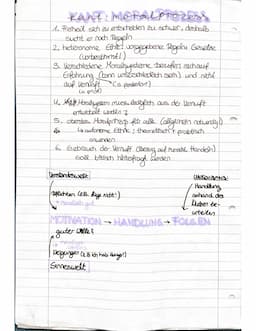 KANT: MORALPROZESS
1. Freiheit sich zu entscheiden zu schwer, deshalb
sucht er nach Regeln
2. heteronome Ethik: vorgegebene Regeln / Gesetze
3. Verschiedene Moralsysteme beruhen sich auf
Erfahrung (kann unterschiedlich sein) und nicht
auf Vernunft (a posteriori)
4. Moralsystem muss lediglich aus der Vernunft
entwickelt werden
5. oberstes Moralprinzip für alle (allgemein notwendig)
6. autonome Ethik: theoretisch praktisch
anwenden
6. Gebrauch der Vernunft (Bezug auf moral. Handeln)
soll kritisch hinterfragt werden
Verstandeswelt
Pflichten (z.B. lüge nicht!)
Handlung
anhand der
MOTIVATION → HANDLUNG → FOLGEN
guter Wille!
Neigungen (z.B. ich hab Hunger!)
Sinneswelt